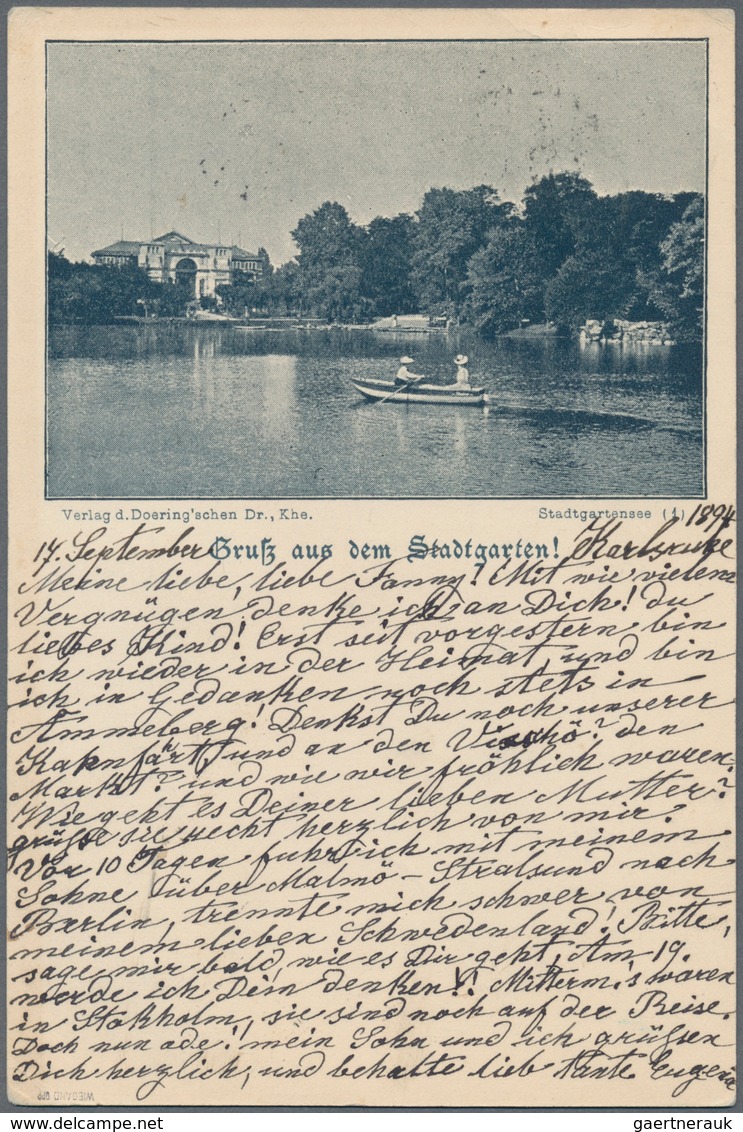 Verlag d. Doering'schen Dr., Khe.
Stadtgartensee (1)
1894
14. September Gruß aus dem Stadtgarten! Karlsruhe
Meine liebe, liebe Fanny! Mit wie vielem
Vergnügen denke ich an Dich! du
liebes Kind! Erst seit vorgestern bin
ich wieder in der Heimat, und bin
ich in Gedanken noch stets in
Ammeberg! Denkst Du noch unserer
Kahnfart, und an den Vischö? den
Markt? und wie wir fröhlich waren.
Wie geht es Deiner lieben Mutter?
grüße sie recht herzlich von mir.
Vor 10 Tagen fuhr ich mit meinem
Sohne über Malmö - Stralsund nach
Berlin, trennte mich schwer von
meinem lieben Schwedenland! Bitte,
sage mir bald, wie es Dir geht, Am 19.
werde ich Dein denken!! Mitterm.'s waren
in Stokholm, sie sind noch auf der Reise.
Doch nun ade! mein Sohn und ich grüßen
Dich herzlich, und behalte lieb Tante Eugenia
WIEGAND
gaertnerauk